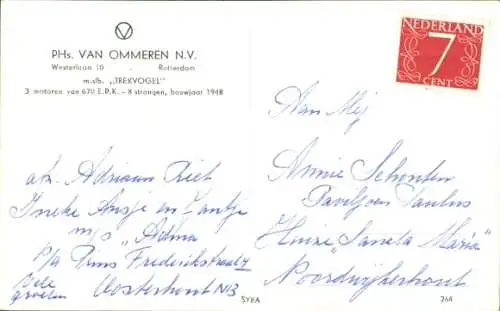 PHs. VAN OMMEREN N.V.
Westerlaan 10 - Rotterdam
m.slb. „TREKVOGEL"
3 motoren van 670 E.P.K. – 8 strangen, bouwjaar 1948
NEDERLAND
7
CENT
Aan Mej
Annie Schouten
Paviljoen Paulus
Huize „Sancta Maria"
Noordwijkerhout
afz. Adriaan Riet
Ineke Ansje en Jantje
m/s „Adina
p/a Prins Frederikstraat
Oosterhout NB
Vele
groeten
SYBA 264